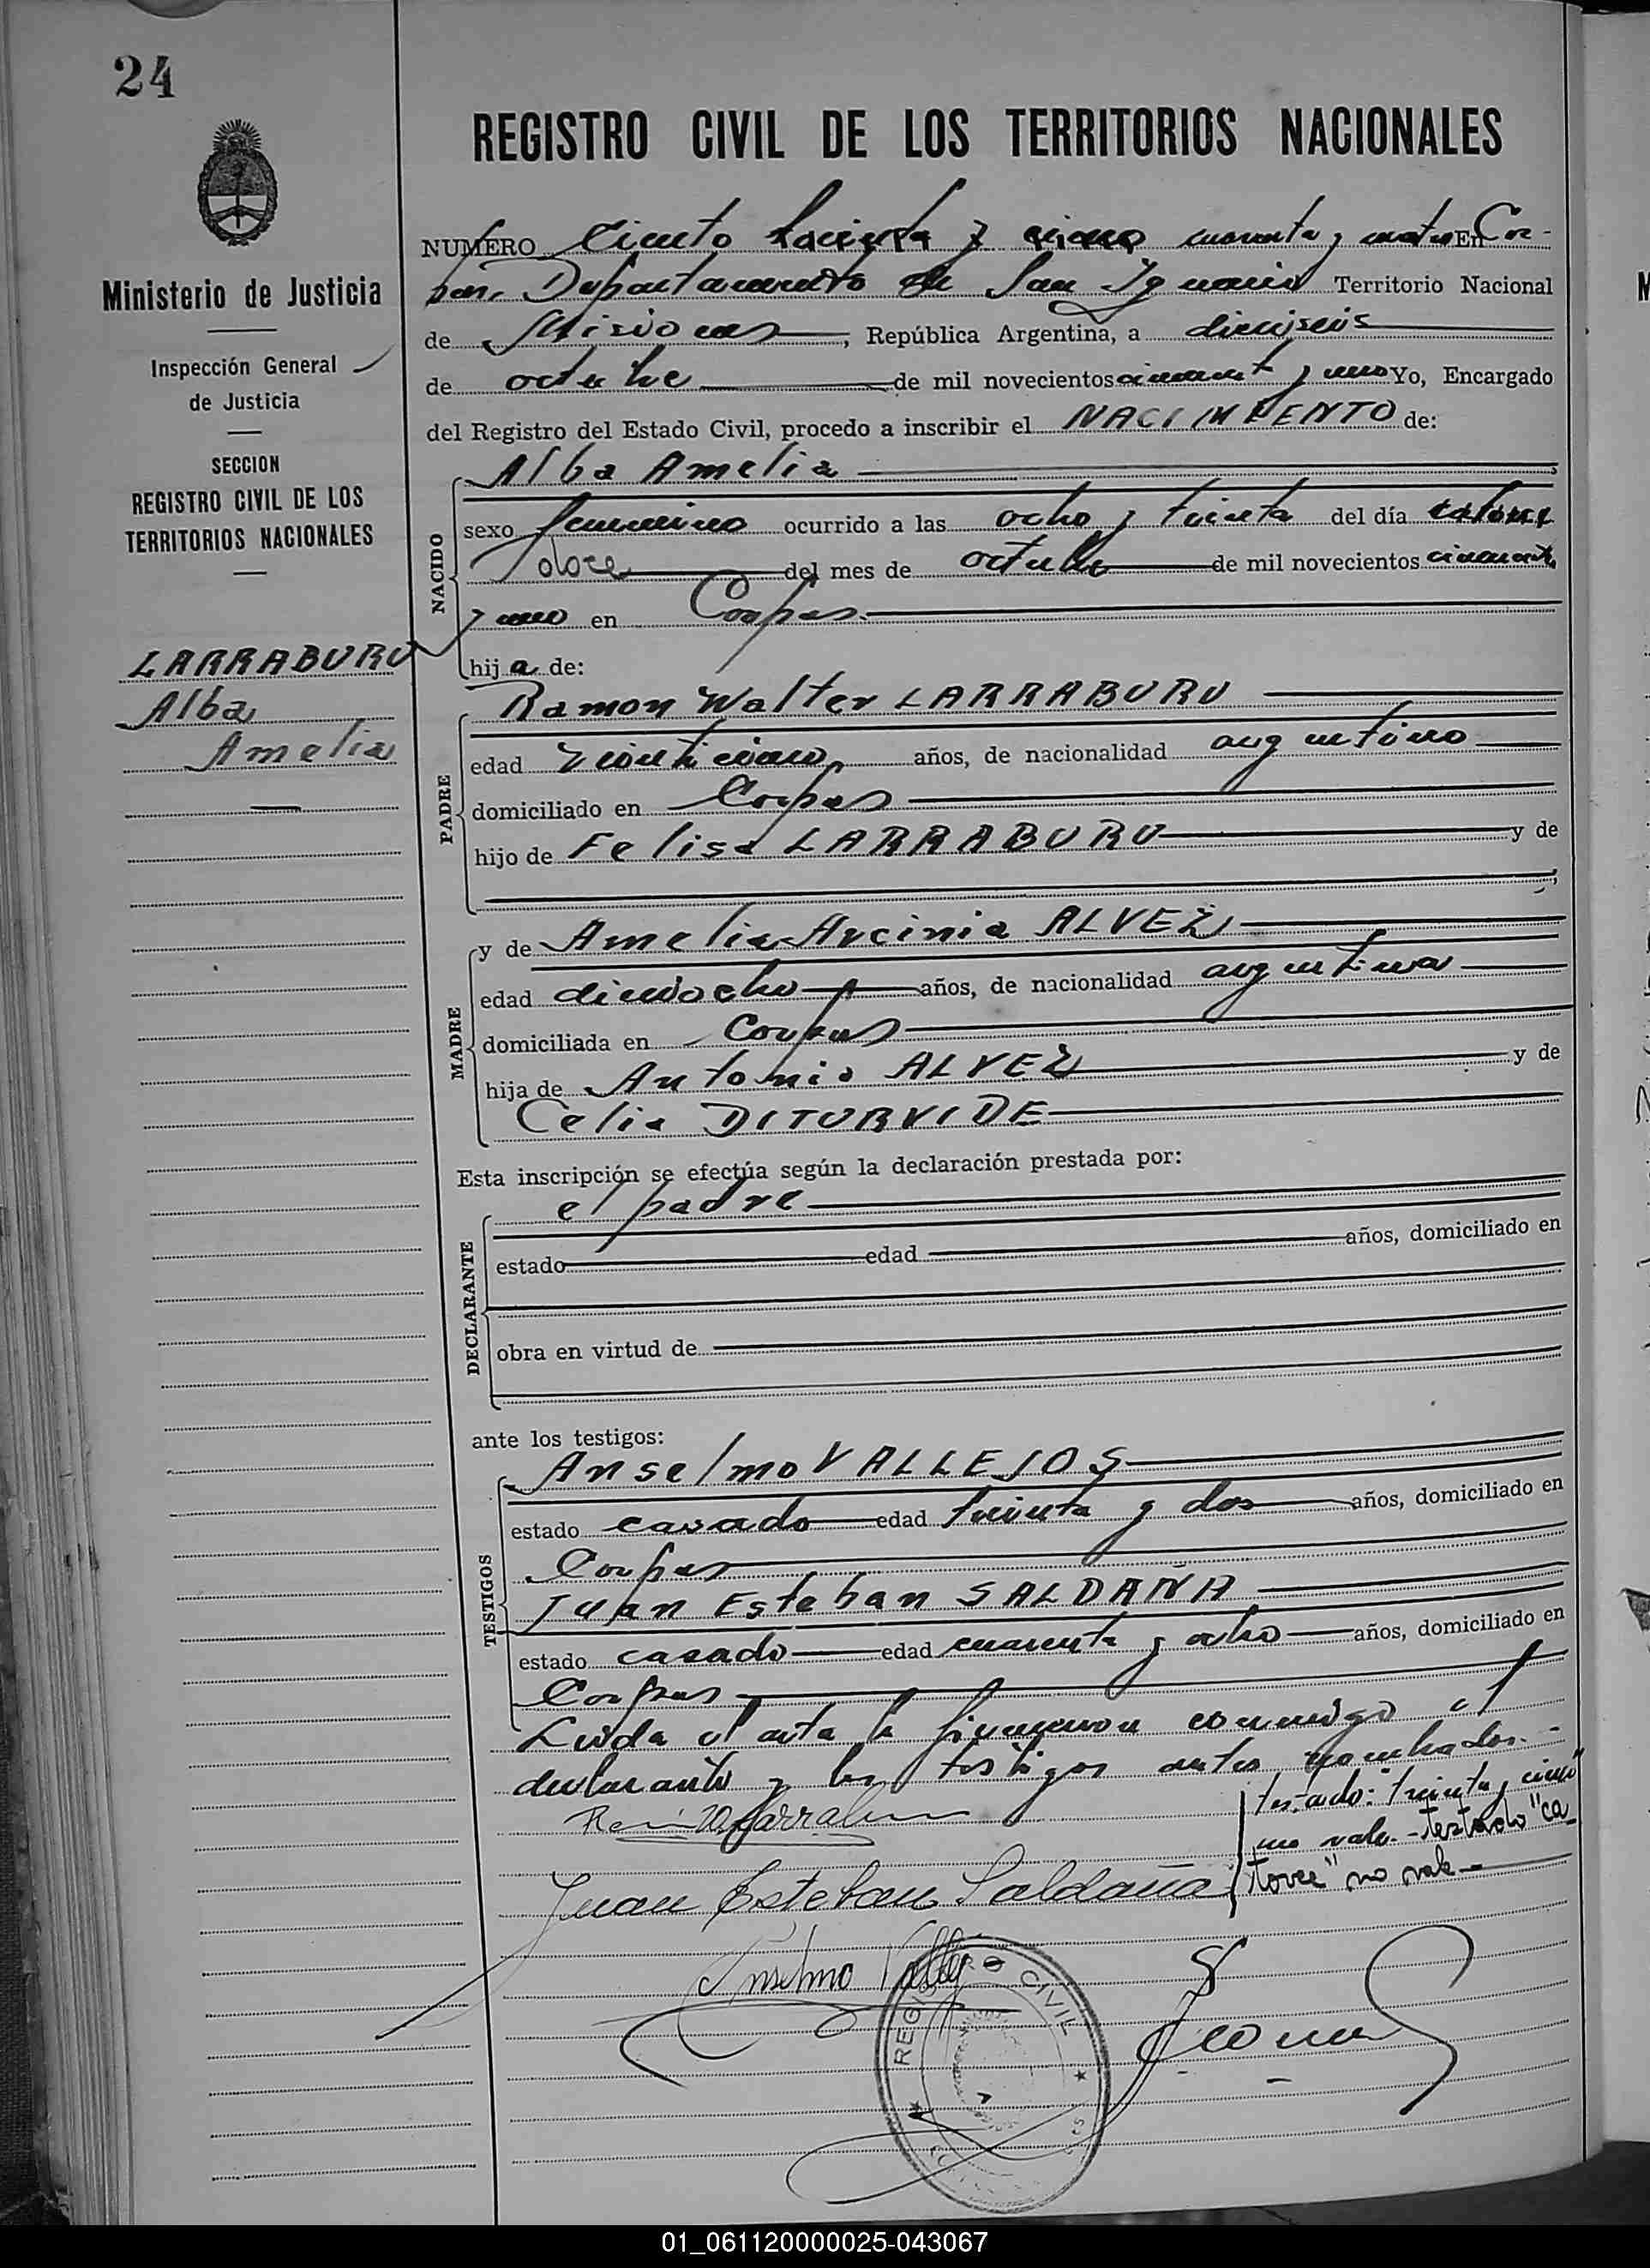 24
REGISTRO CIVIL DE LOS TERRITORIOS NACIONALES
Ministerio de Justicia
Inspección General
de Justicia
SECCION
REGISTRO CIVIL DE LOS
TERRITORIOS NACIONALES
LARRABURU
Alba
Amelia
NUMERO Ciento treinta y cinco cuarenta y cuatro En Cor-
pus, Departamento de San Ignacio Territorio Nacional
de Misiones, República Argentina, a dieciseis
de octubre de mil novecientos cincuenta y uno Yo, Encargado
del Registro del Estado Civil, procedo a inscribir el NACIMIENTO de:
NACIDO
Alba Amelia
sexo femenino ocurrido a las ocho y treinta del día catorce
doce del mes de octubre de mil novecientos cincuenta
y uno en Corpus.
hija de:
PADRE
Ramon Walter LARRABURU
edad veinticinco años, de nacionalidad argentino
domiciliado en Corpus
hijo de Felisa LARRABURU y de
MADRE
y de Amelia Arcinia ALVEZ
edad dieciocho años, de nacionalidad argentina
domiciliada en Corpus
hija de Antonio ALVEZ y de
Celia DITURVIDE
Esta inscripción se efectúa según la declaración prestada por:
DECLARANTE
el padre
estado edad años, domiciliado en
obra en virtud de
ante los testigos:
TESTIGOS
Anselmo VALLEJOS
estado casado edad treinta y dos años, domiciliado en
Corpus
Juan Esteban SALDAÑA
estado casado edad cuarenta y ocho años, domiciliado en
Corpus
Leída el acta la firmaron conmigo el
declarante y los testigos antes nombrados.-
Testado: "treinta y cinco"
no vale.-Testado "ca
torce" no vale-
Juan Esteban Saldaña
Anselmo Vallejos
REGISTRO CIVIL
01_061120000025-043067